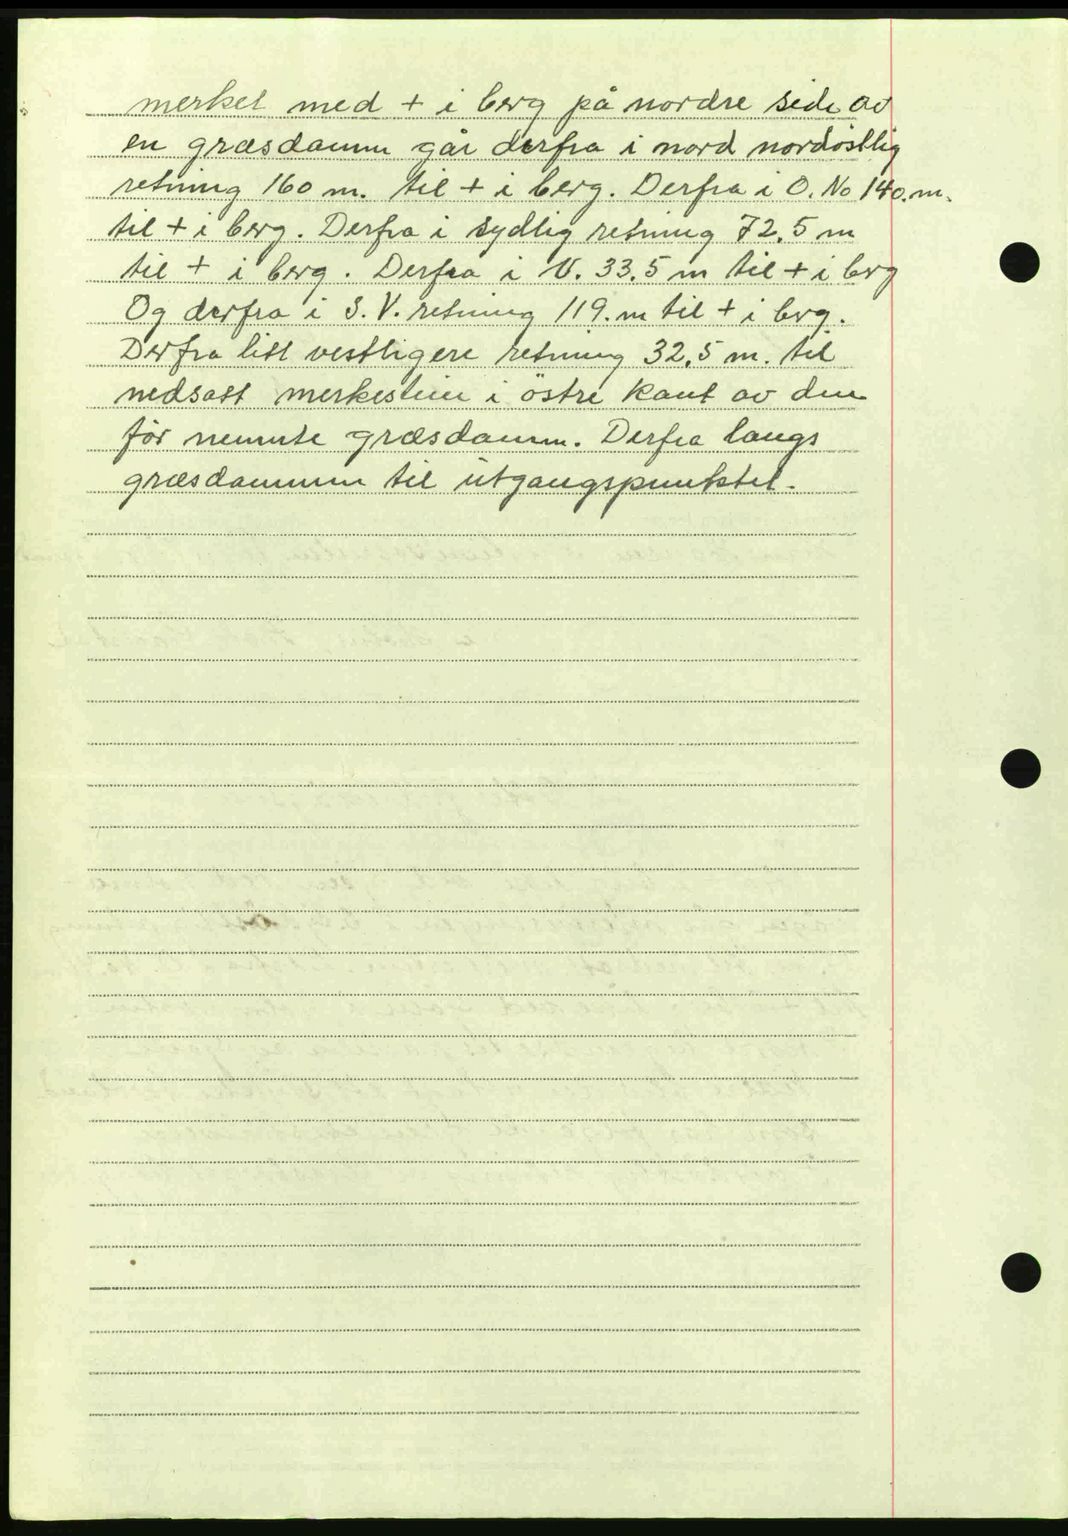 merket med + i berg på nordre side av
en græsdamm går derfra i nord nordöstlig
retning 160 m. til + i berg. Derfra i O. No 140. m.
til + i berg. Derfra i sydlig retning 72,5 m
til + i berg. Derfra i V. 33,5 m til + i berg
Og derfra i S. V. retning 119. m til + i berg.
Derfra litt vestligere retning 32,5 m. til
nedsatt merkestein i östre kant av den
för nemnte græsdamm. Derfra langs
græsdammen til utgangspunktet.